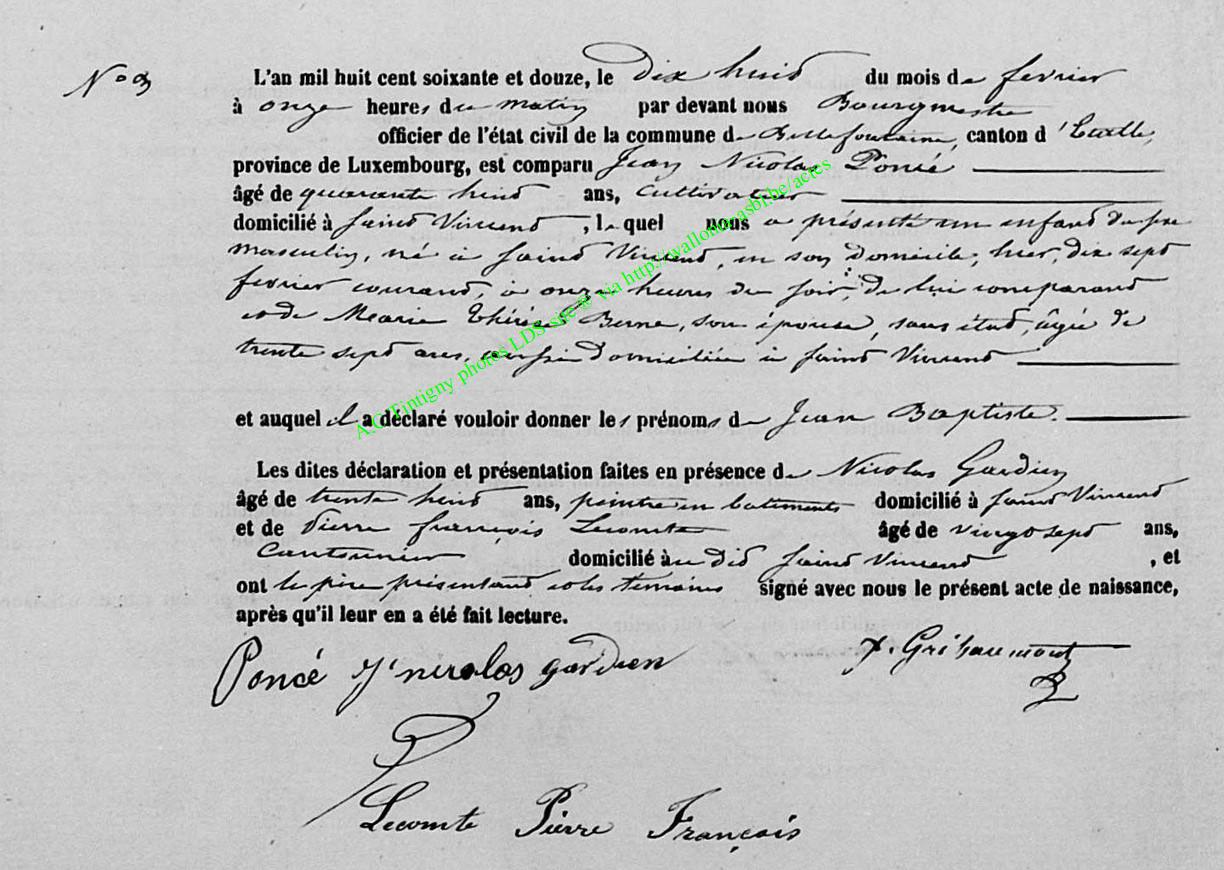 N° 3
L'an mil huit cent soixante et douze, le dix huit du mois de fevrier
à onze heures du matin par devant nous Bourgmestre
officier de l'état civil de la commune de Bellefontaine, canton d'Etalle,
province de Luxembourg, est comparu Jean Nicolas Poncé
âgé de quarante huit ans, cultivateur
domicilié à Saint Vincent, lequel nous a présenté un enfant du sexe
masculin, né à Saint Vincent, en son domicile, hier, dix sept
fevrier courant, à onze heures du soir, de lui comparant
et de Marie Thérèse Berne, son épouse, sans état, âgée de
trente sept ans, aussi domiciliée à Saint Vincent
et auquel il a déclaré vouloir donner les prénoms de Jean Baptiste.
Les dites déclaration et présentation faites en présence de Nicolas Gardien
âgé de trente huit ans, peintre en batements domicilié à Saint Vincent
et de Pierre François Lecomte âgé de vingt sept ans,
Cantonnier domicilié à u dit Saint Vincent, et
ont le père présentant et les temoins signé avec nous le présent acte de naissance,
après qu'il leur en a été fait lecture.
Poncé J nicolas gardien
Lecomte Pierre François
A.C. Tintigny photos LDS site © via http://wallonica.sbi.be/actes